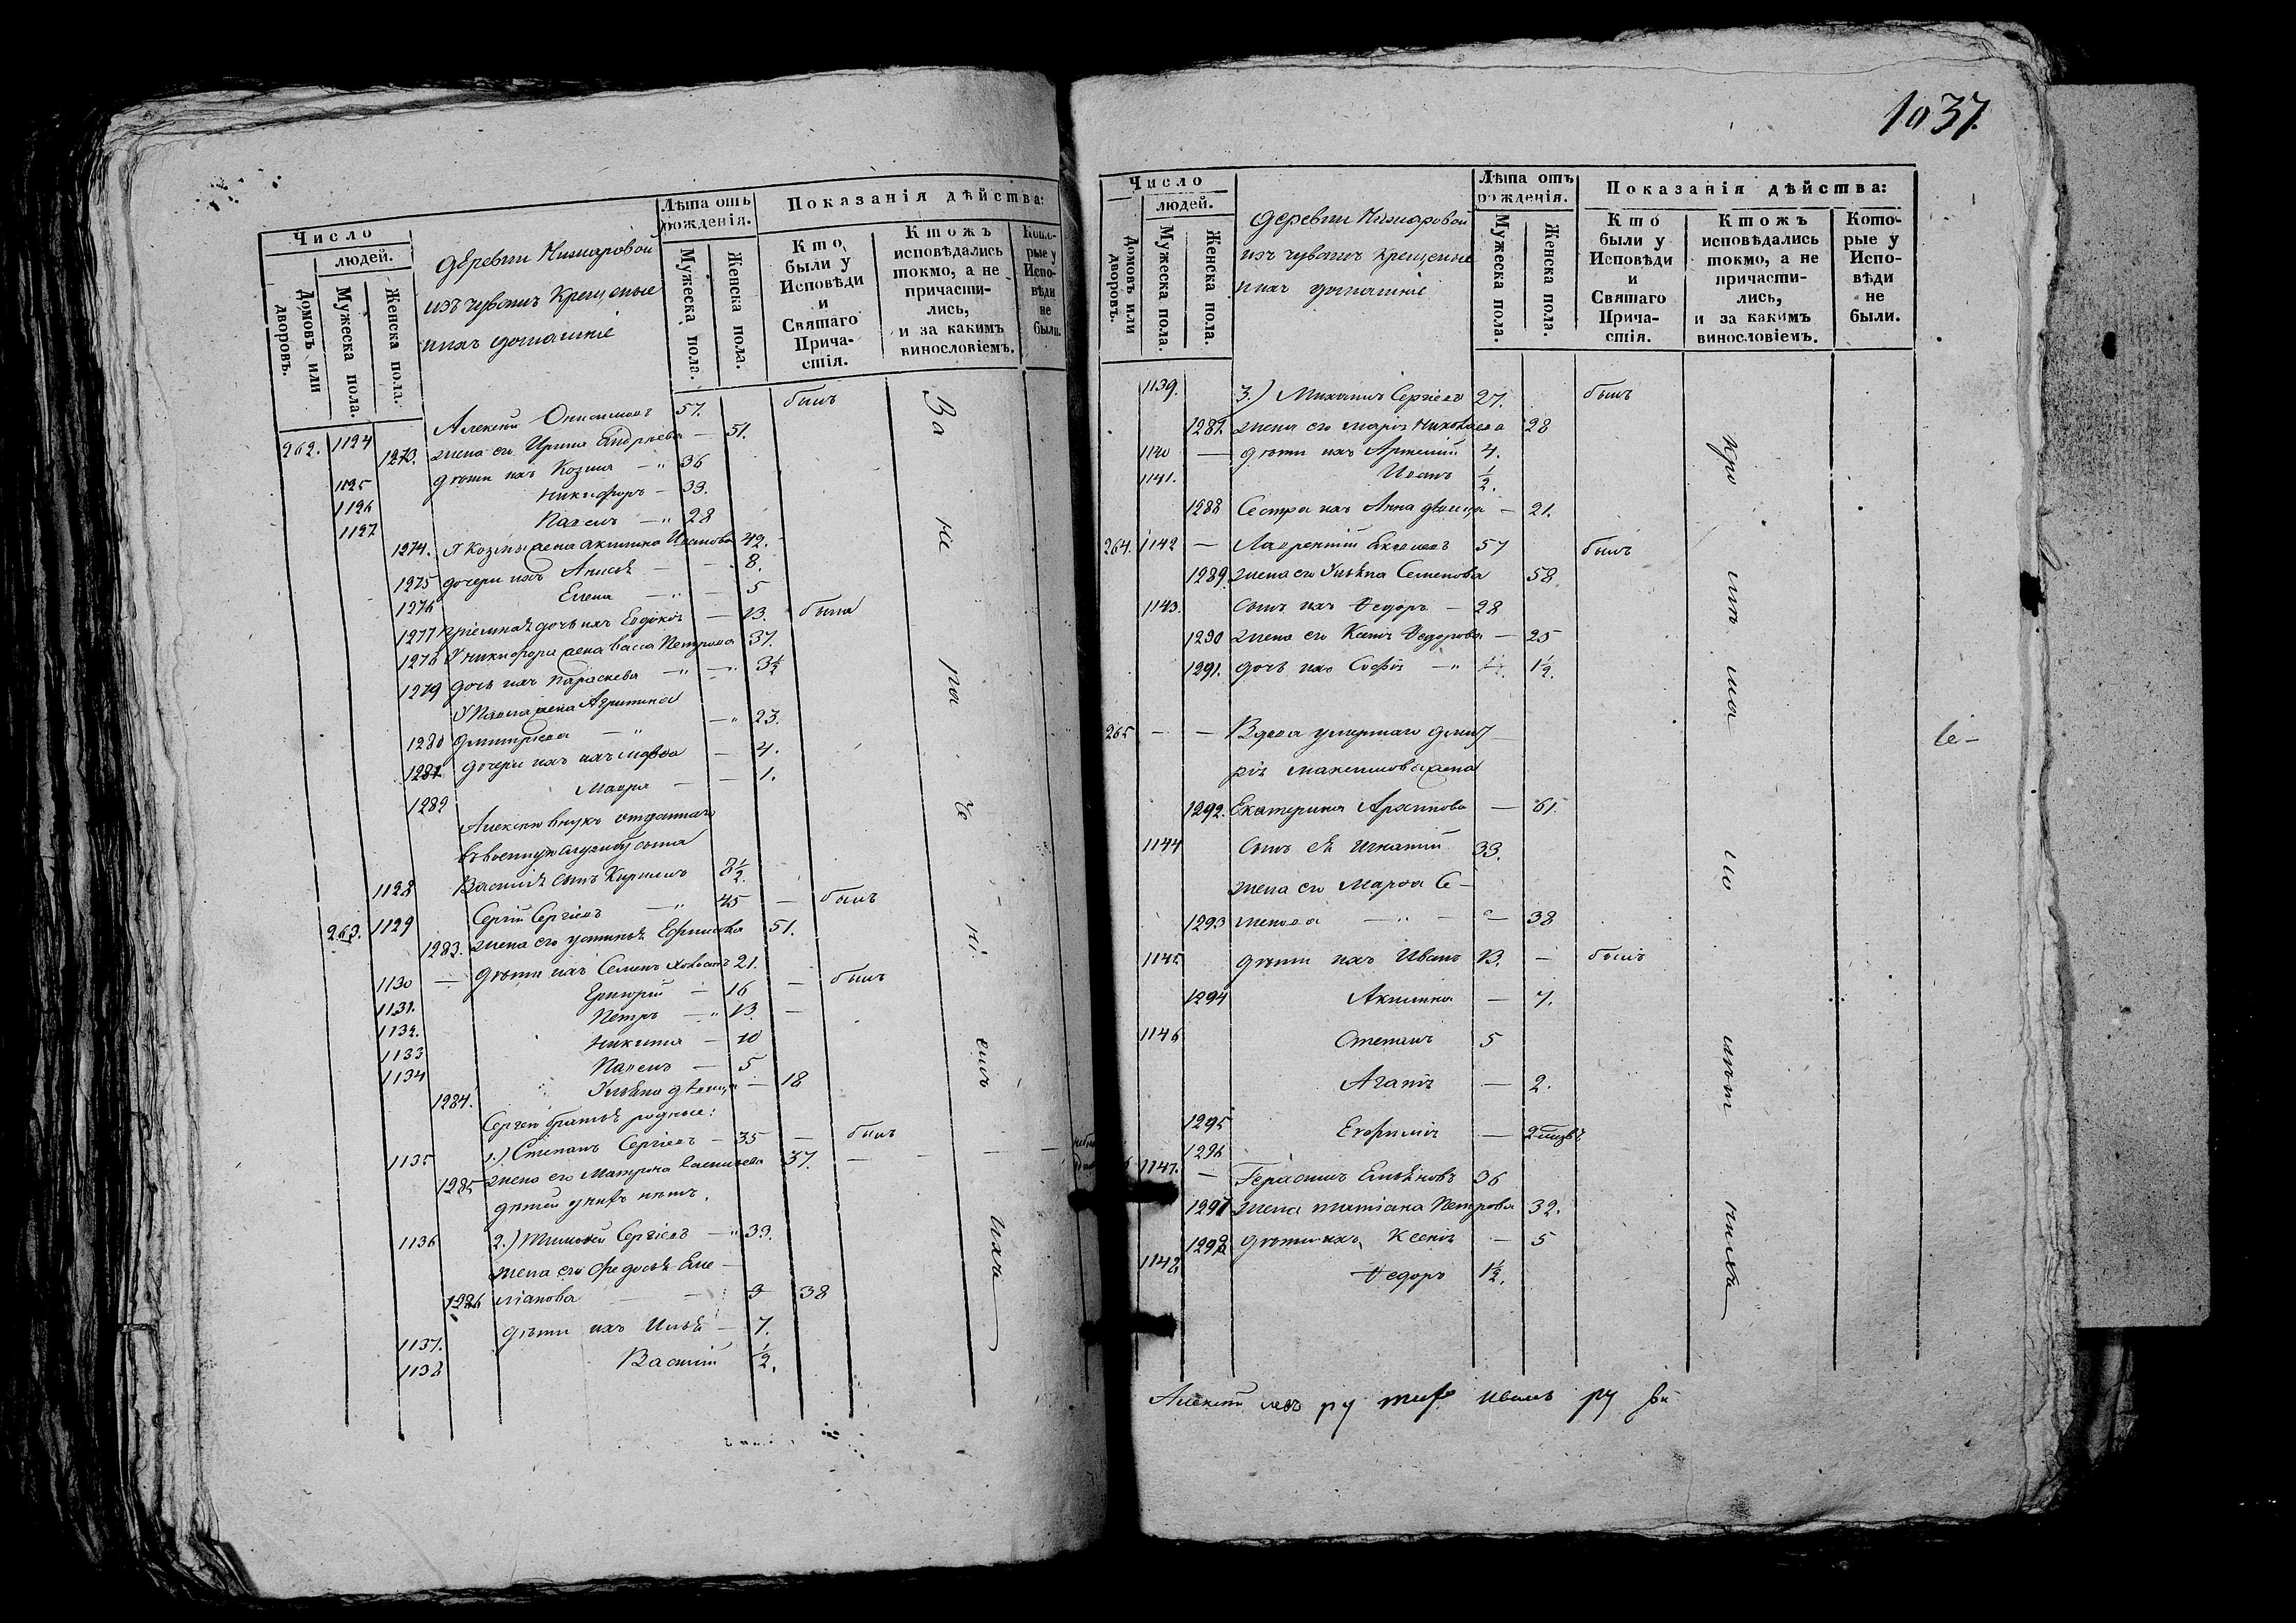 Число
людей.
Домовъ или дворовъ.
Мужеска пола.
Женска пола.
деревни
изъ чувашъ Крещеные
и ихъ домашніе
Лѣта отъ рожденія.
Мужеска пола.
Женска пола.
Показанія дѣйства:
Кто были у Исповѣди и Святаго Причастія.
Ктожъ исповѣдались токмо, а не причастились, и за какимъ винословіемъ.
Которые у Исповѣди не были.
262. 1124 Алексѣй Онисимовъ 57. былъ
1273. жена его Ирина Андреева — 51.
1125 дѣти ихъ Козма — 36
1126 Никифоръ — 33.
1127 Павелъ — 28
1274. У Козмы жена Акилина Иванова 42.
1275 дочери ихъ Анисья — 8.
1276 Елена — 5
1277 пріемная дочь ихъ Евдокія — 13. была
1278 У Никифора жена Васса Петрова 37.
1279 дочь ихъ Параскева — 3½
У Павла жена Агрипина
1280 Дмитріева — 23.
1281 дочери ихъ Марѳа — 4.
1282 Мавра — 1.
Алексѣя внукъ отданнаго
въ военную службу сына
1128 Василья сынъ Кирилъ 8½
263. 1129 Сергій Сергіевъ 45 — былъ
1283. жена его Устинья Ефимова 51.
1130 — дѣти ихъ Семенъ холостъ 21.
1131. Григорій — 16 — былъ
1132. Петръ — 13. —
1133 Никита — 10
1134 Павелъ — 5
1284. Ульяна дѣвица — 18
Сергея братья родные:
1135 1.) Степанъ Сергіевъ — 35 — былъ
1285 жена его Матрона Васильева 37. —
дѣтей у нихъ нѣтъ.
1136 2.) Тимоѳей Сергіевъ — 33.
жена его Федосья Еме-
1286 ліанова — 38
1137. дѣти ихъ Илья — 7.
1138 Василій ½.
За не по че ні емъ ихъ
1037.
Число
людей.
Домовъ или дворовъ.
Мужеска пола.
Женска пола.
деревни
изъ чувашъ Крещеные
и ихъ домашніе
Лѣта отъ рожденія.
Мужеска пола.
Женска пола.
Показанія дѣйства:
Кто были у Исповѣди и Святаго Причастія.
Ктожъ исповѣдались токмо, а не причастились, и за какимъ винословіемъ.
Которые у Исповѣди не были.
1139. 3.) Михаилъ Сергіевъ 27. былъ
1287. жена его Марія Николаева 28
1140 — дѣти ихъ Артемій 4.
1141. Иванъ ½.
1288 Сестра ихъ Анна дѣвица — 21.
264. 1142 — Лаврентій 57 былъ
1289. жена его Ульяна Семенова 58
1143. Сынъ ихъ Ѳедоръ — 28
1290 жена его Ксенія Ѳедорова — 25
1291. дочь ихъ Софія — 1½.
265 — — Вдова умершаго Дмит-
рія Максимова жена
1292. Екатерина Архипова — 61.
1144 Сынъ ея Игнатій 33.
жена его Марѳа Се-
1293 менова — 38
1145. дѣти ихъ Иванъ 13. — былъ
1294 Акилина — 7.
1146 Степанъ 5
Агапія — 2.
1295 Евфимія —
1296
1147. — Герасимъ Емельяновъ 36
1297 жена Татіана Петрова 32.
1298 дѣти ихъ Ксенія — 5
1148 Ѳедоръ 1½.
Се-
Алексѣй ру Иванъ ру